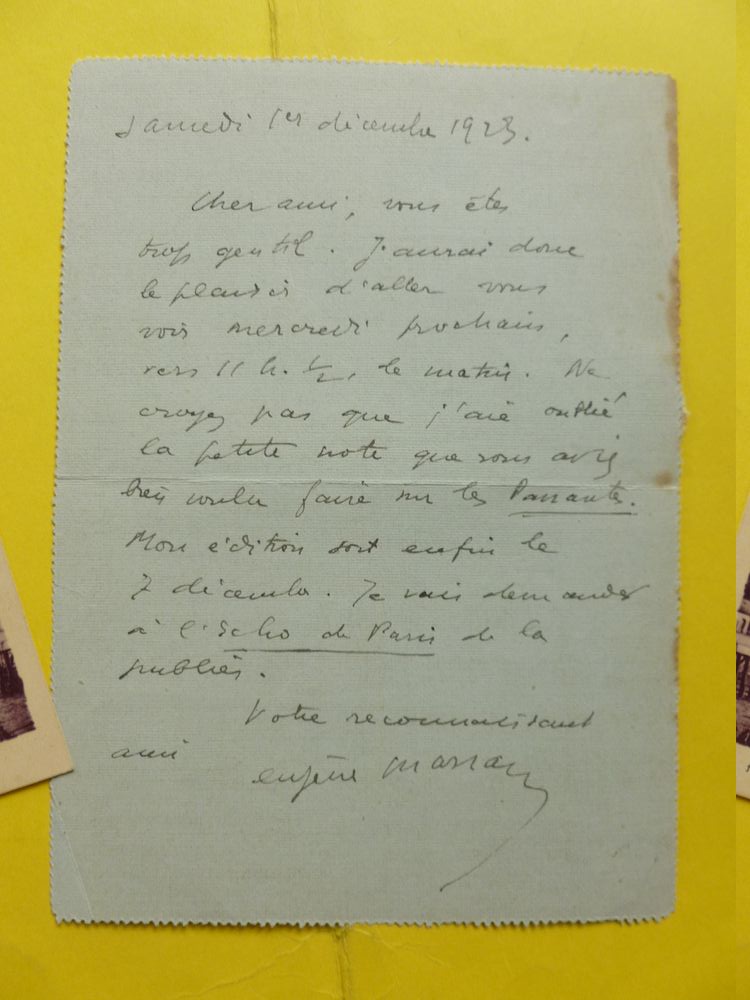 Samedi 1er décembre 1923.
Cher ami, vous êtes
trop gentil. J'aurai donc
le plaisir d'aller vous
voir mercredi prochain,
vers 11 h. 1/2, le matin. Ne
croyez pas que j'aie oublié
la petite note que vous avez
bien voulu faire sur les Passantes.
Mon édition sort enfin le
7 décembre. Je vais demander
à l'Echo de Paris de la
publier.
Votre reconnaissant
ami
eugène Marsan